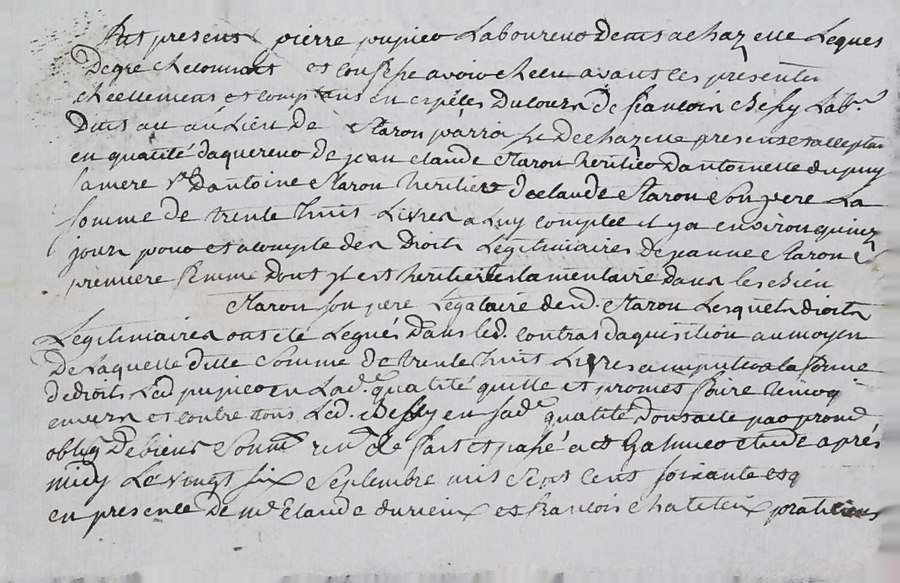 Fut present pierre pupier Laboureur demt a chazelle Leques
De gre et confesse avoir cheeu avant ces presentes
cheellement et comptans en espéces du cours De francois chessy Labr
Demt au au Lieu de Maron parroisse De chazelle present et acceptan
en qualité daquereur De jean claude Maron heritier Dantoinette dupuy
sa mere Dantoine Maron heritier declaude Maron son pere La
somme de trente huit Livres a Luy comptée il y a environ quinz
jours pour et acompte des Droits Légitimaires De jeanne Maron
premiere femme dont il est heritier testamentaire Dans les
Maron son pere Légataire de Maron Lesquels droits
Légitimaires ont été Legués Dans led. contrat daquisition au moyen
De Laquelle ditte somme de trente huit Livres a imputter a la somme
de droits Led pupier en Lad. qualitté quitte et promet faire tenir
envers et contre tous Led. chessy en sad. qualitté Dont acte par prom
oblig De biens soum ren et clauses fait et passé a St Galmier etude aprés
midy Le vingt six Septembre mil Sept Cent soixante
en presence De me Claude durieux et francois chatelux praticiens